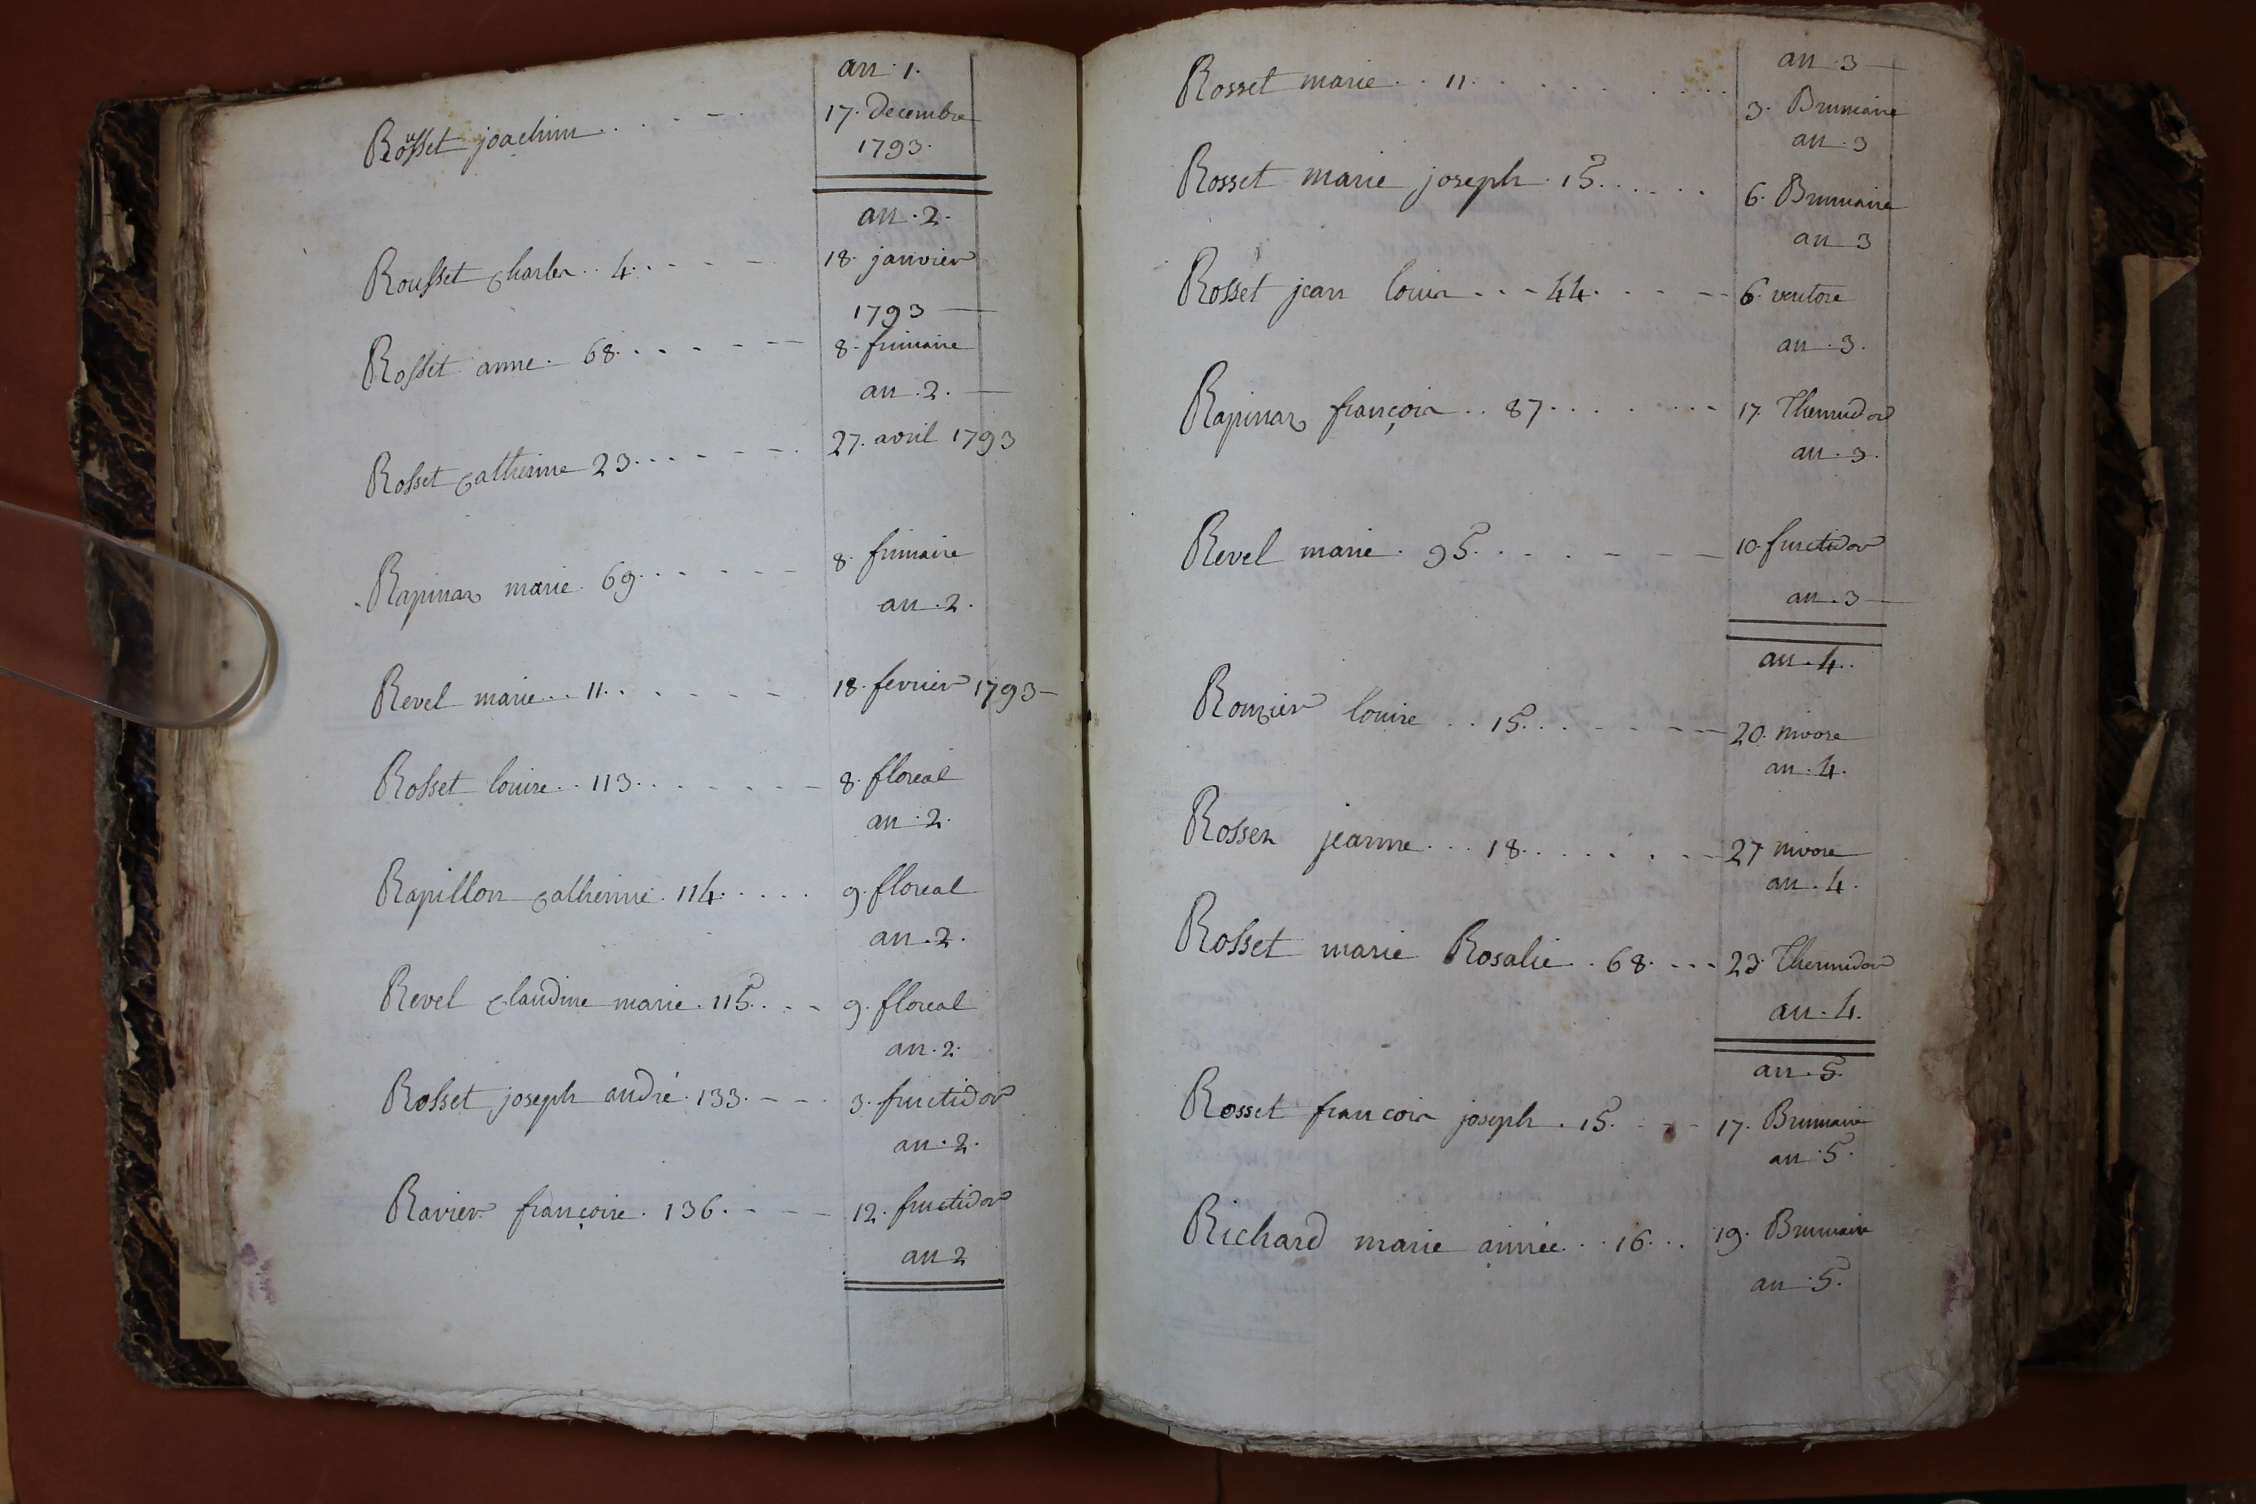 an . 1.
Rousset joachim . . . . . 17. decembre
1793.
an . 2.
Rousset charles . . 4. . . . . 18. janvier
1793
Rosset anne . 68. . . . . . 8. frimaire
an . 2.
Rosset catherine 23. . . . . . 27. avril 1793
Rapinas marie . 69. . . . . . 8. frimaire
an . 2.
Revel marie . . 11. . . . . . 18. fevrier 1793
Rosset louise . . 113. . . . . . 8. floreal
an . 2.
Rapillon catherine . 114. . . . . 9. floreal
an . 2.
Revel claudine marie . 115. . . . 9. floreal
an . 2.
Rosset joseph andré . 133. . . . 3. fructidor
an . 2.
Ravier françoise . 136. . . . 12. fructidor
an 2
an . 3
Rosset marie . . 11. . . . . . 3. Brumaire
an . 3
Rosset marie joseph . 15. . . . . . 6. Brumaire
an 3
Rosset jean louis . . . 44. . . . . 6. ventose
an . 3.
Rapinas françois . . 87. . . . . . 17. Thermidor
an . 3.
Revel marie . 95. . . . . . 10. fructidor
an . 3
an . 4.
Rouzier louise . . 15. . . . . . 20. nivose
an . 4.
Rosses jeanne . . . 18. . . . . . 27 nivose
an . 4.
Rosset marie Rosalie . 68. . . . 23. Thermidor
an . 4.
an . 5.
Rosset francois joseph . 15. . . . 17. Brumaire
an . 5.
Richard marie aimée . . 16. . . 19. Brumaire
an . 5.